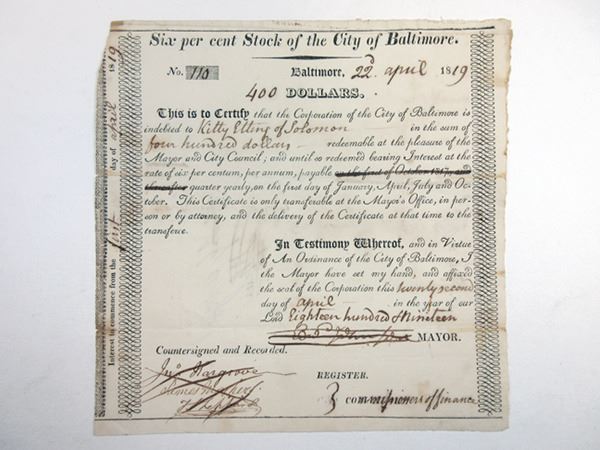 Six per cent Stock of the City of Baltimore.
No. 110 Baltimore, 22d. april 1819
400 DOLLARS.
This is to Certify that the Corporation of the City of Baltimore is
indebted to Kitty Etting of Solomon in the sum of
four hundred dollars redeemable at the pleasure of the
Mayor and City Council, and until so redeemed bearing Interest at the
rate of six per centum, per annum, payable on the first of October 1817, and
thereafter quarter yearly, on the first day of January, April, July and Oc-
tober. This Certificate is only transferable at the Mayor's Office, in per-
son or by attorney, and the delivery of the Certificate at that time to the
transferee.
In Testimony Whereof, and in Virtue
of An Ordinance of the City of Baltimore, I
the Mayor have set my hand, and affixed
the seal of the Corporation this twenty second
day of april in the year of our
Lord Eighteen hundred & Nineteen
MAYOR.
Countersigned and Recorded.
Jno. Hargrove
REGISTER.
commissioners of finance
Interest to commence from the first day of April 1819